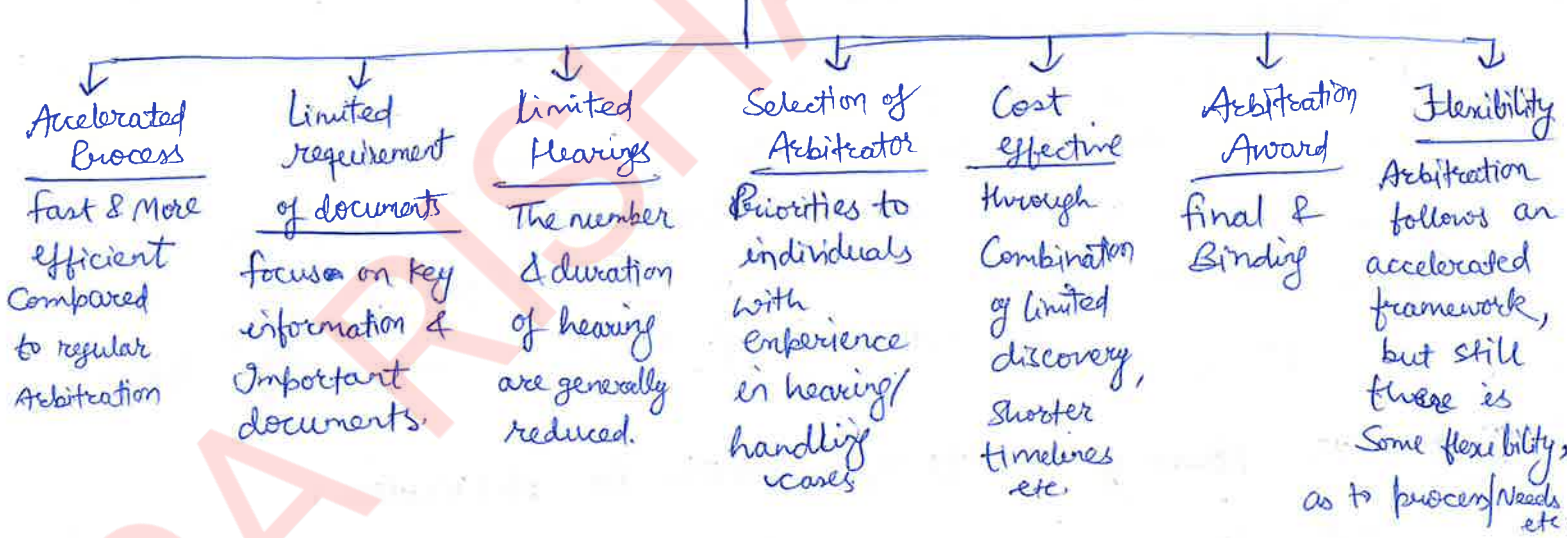 Accelerated
Process
fast & More
efficient
Compared
to regular
Arbitration
Limited
requirement
of documents
focus on key
information &
Important
documents.
Limited
Hearings
The number
& duration
of hearing
are generally
reduced.
Selection of
Arbitrator
Priorities to
individuals
with
experience
in hearing/
handling
cases
Cost
effective
through
Combination
of limited
discovery,
shorter
timelines
etc.
Arbitration
Award
final &
Binding
Flexibility
Arbitration
follows an
accelerated
framework,
but still
there is
Some flexibility,
as to process/Needs
etc